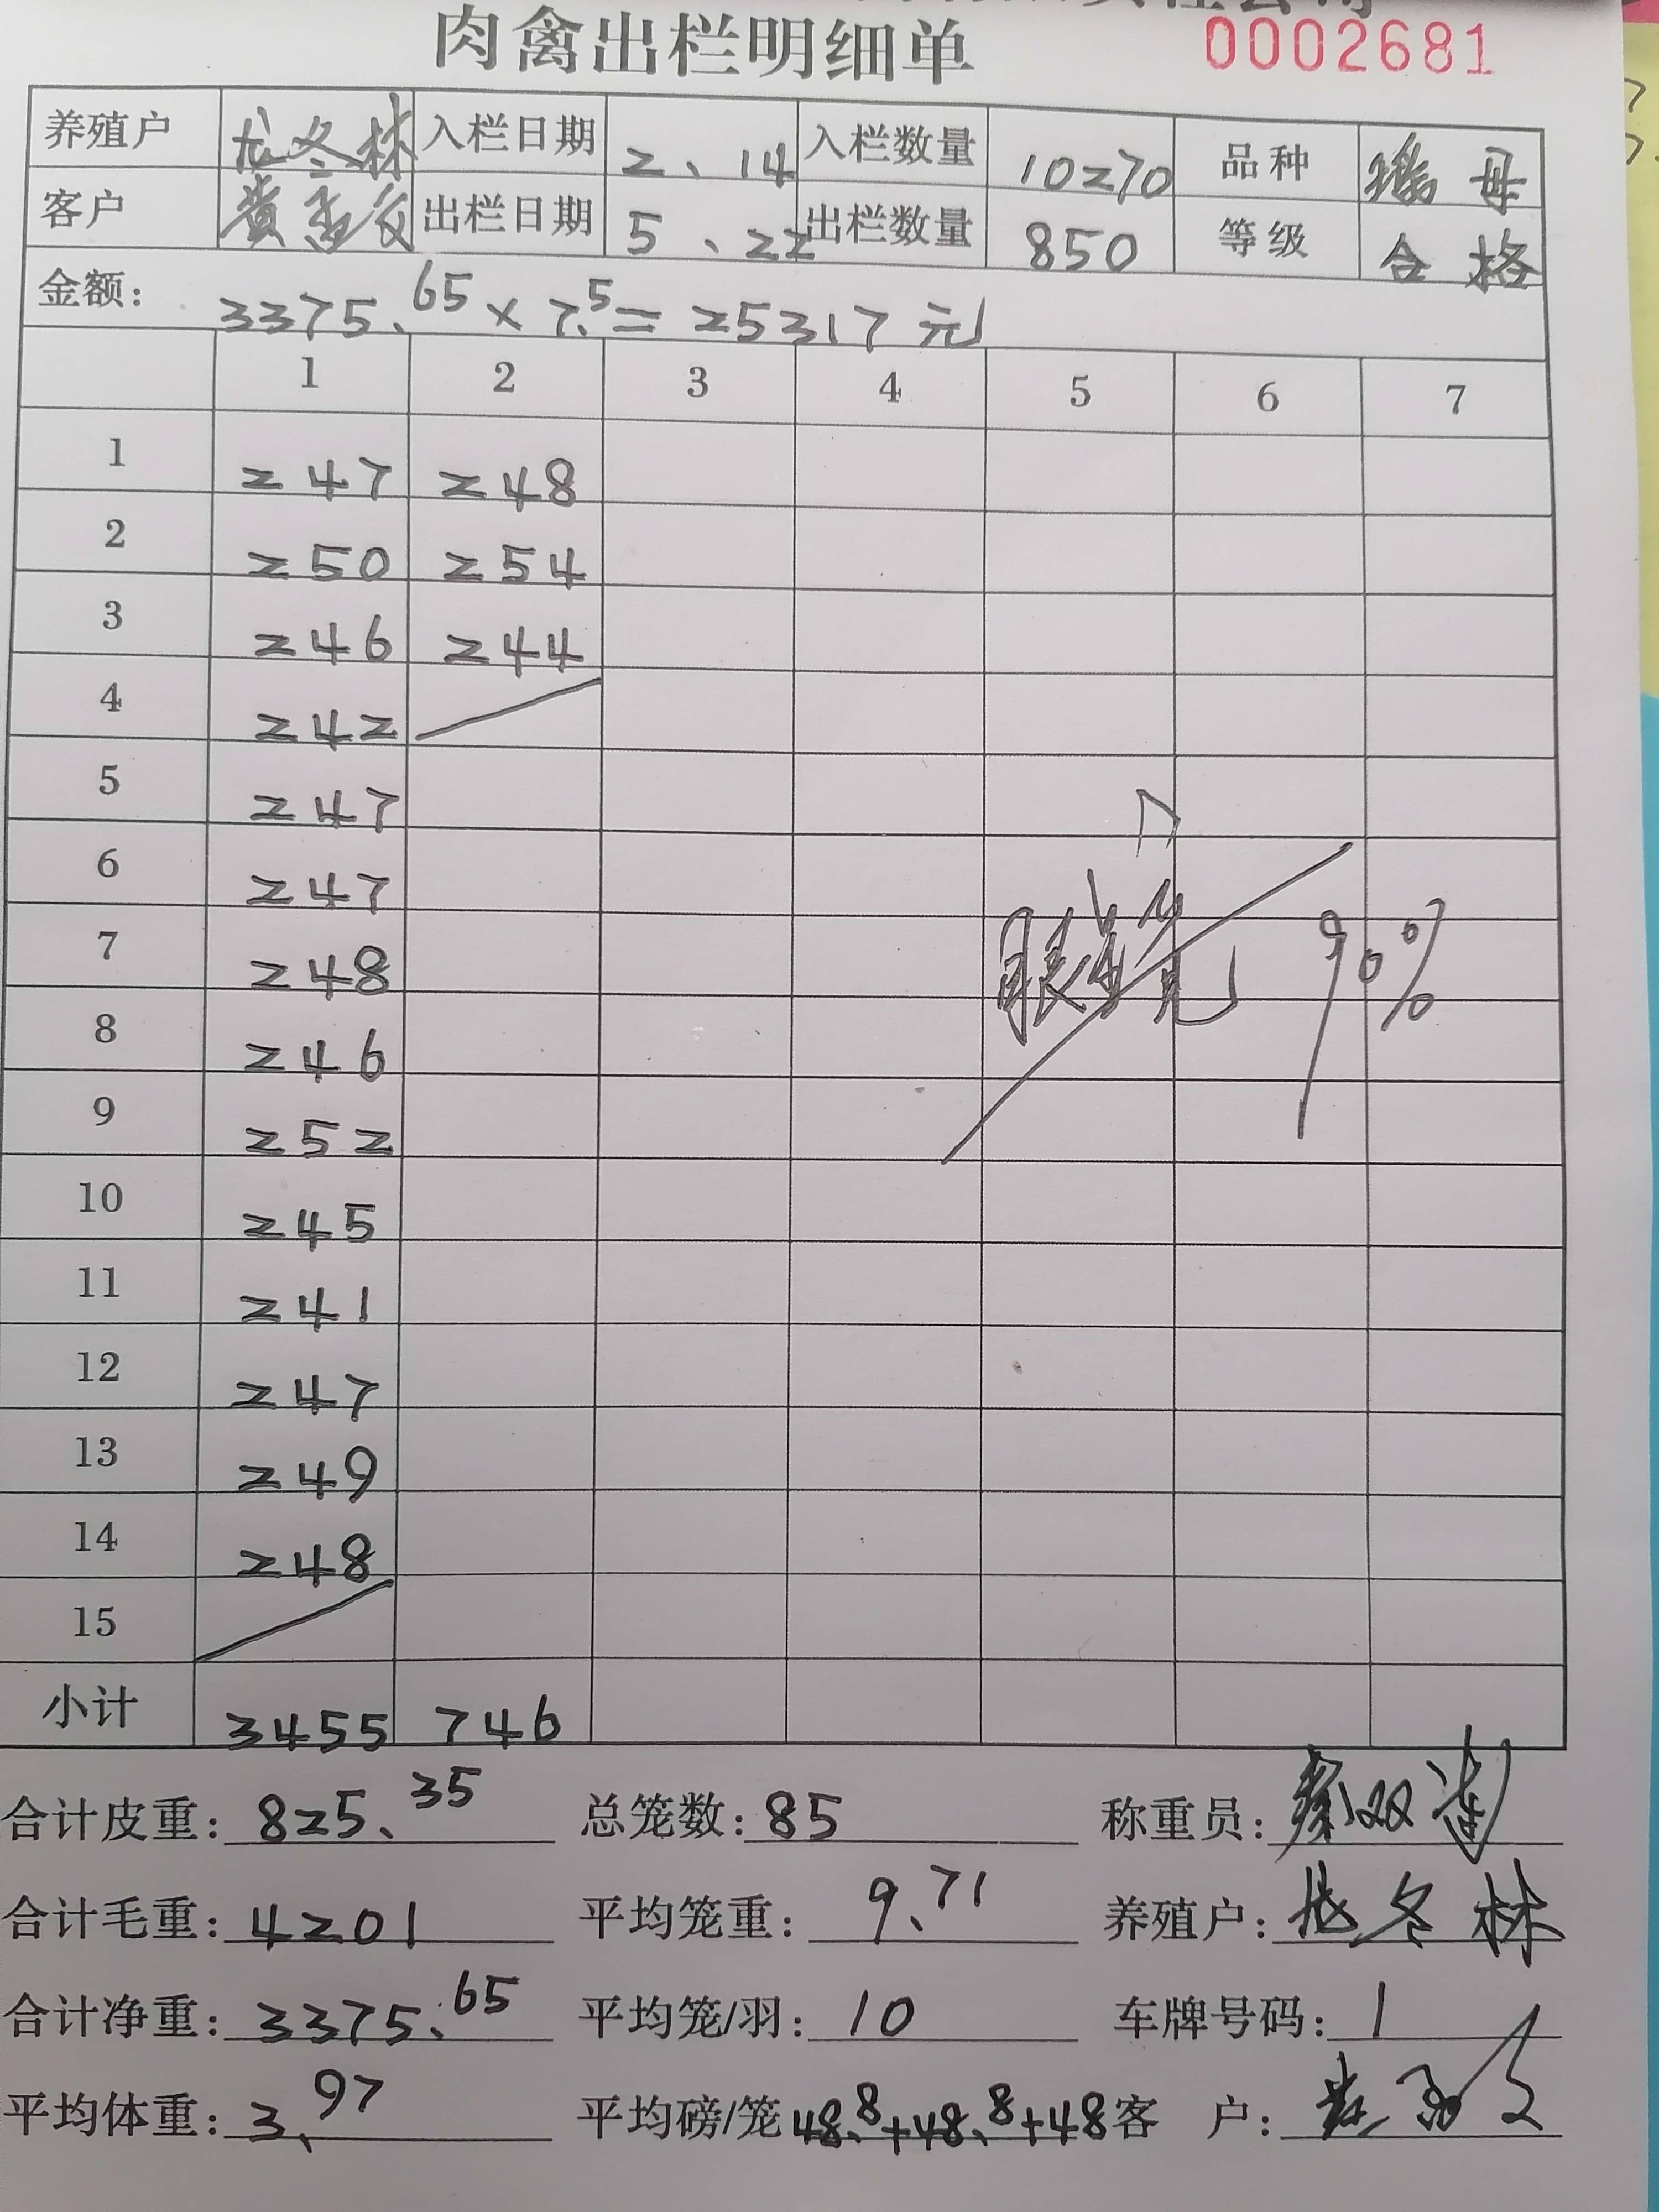 肉禽出栏明细单 0002681
养殖户 龙冬林 入栏日期 2、14 入栏数量 10270 品种 瑶母
客户 黄孟交 出栏日期 5、22 出栏数量 850 等级 合格
金额： 3375.65 × 7.5 = 25317元
1 2 3 4 5 6 7
1 247 248
2 250 254
3 246 244
4 242
5 247
6 247
7 248
8 246
9 252
10 245
11 241
12 247
13 249
14 248
15
90%
小计 3455 746
合计皮重：825.35 总笼数：85 称重员：
合计毛重：4201 平均笼重：9.71 养殖户：龙冬林
合计净重：3375.65 平均笼/羽：10 车牌号码：1
平均体重：3.97 平均磅/笼 48.8+48.8+48 客 户：